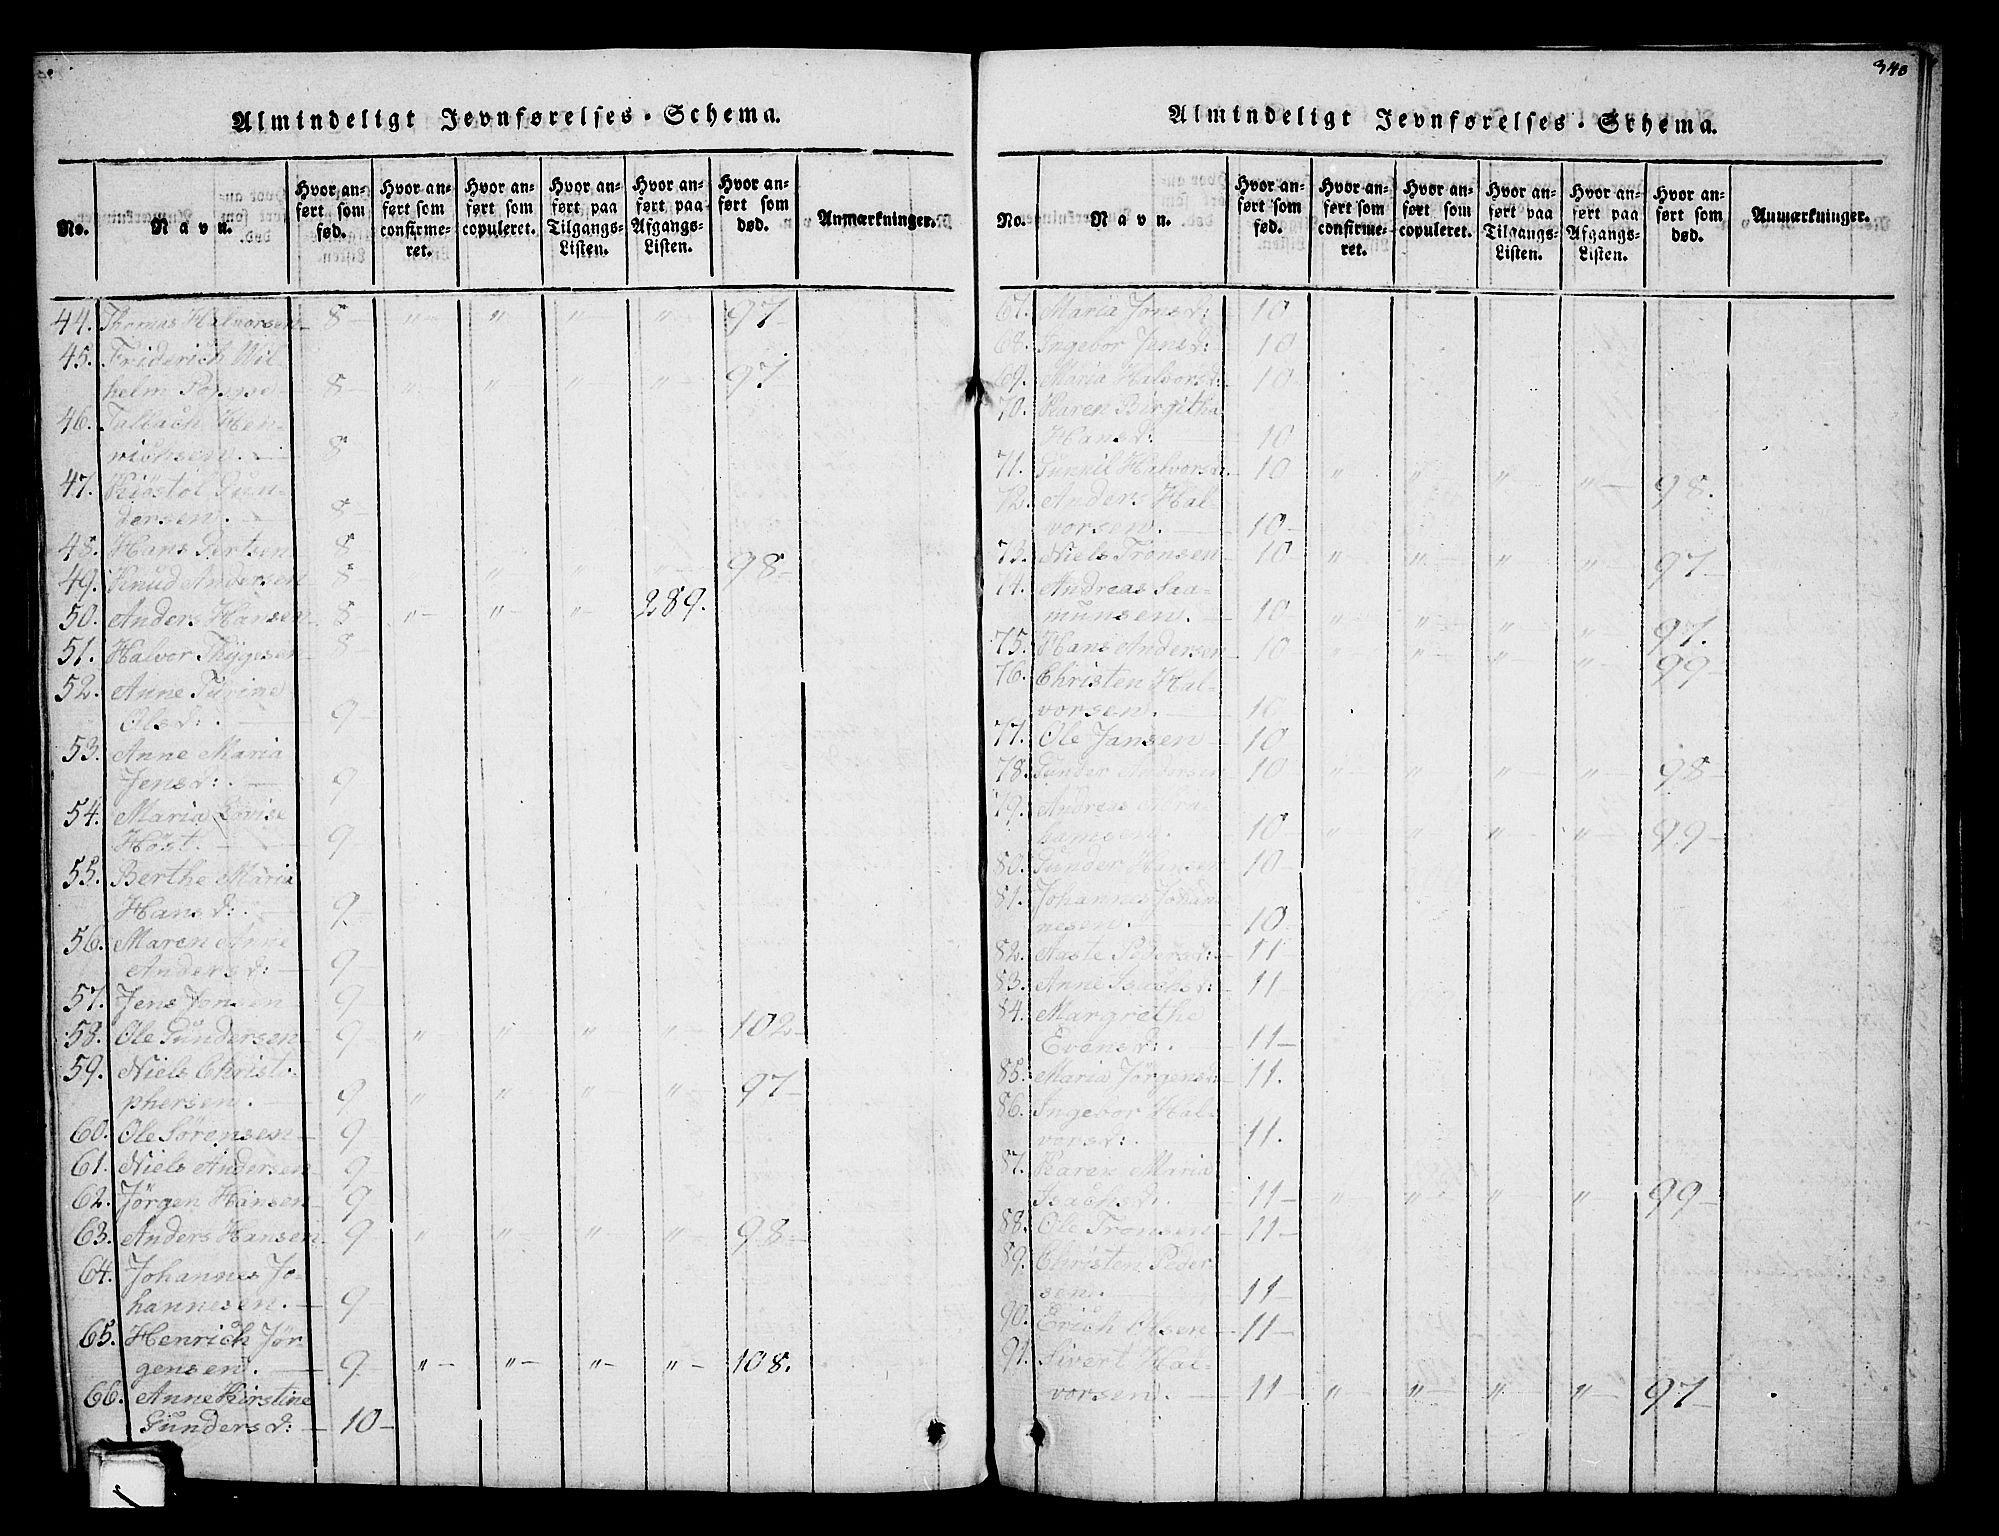 340
Almindeligt Jevnførelses-Schema.
No.
Navn.
Hvor anført som fød.
Hvor anført som confirmeret.
Hvor anført som copuleret.
Hvor anført paa Tilgangs-Listen.
Hvor anført paa Afgangs-Listen.
Hvor anført som død.
Anmærkninger.
44. Thomas Halvorsen 8 - " - " - " - " - 97 -
45. Friderich Wil-
helm 8 - " - " - " - " - 97 -
46. Hen-
richsen. - 8 -
47. Kiöstol Gun-
dersen. - 8 -
48. Hans Bertsen 8 -
49. Knud Andersen 8 - " - " - " - " - 98 -
50. Anders Hansen 8 - " - " - " - 289.
51. Halvor Thygesen 8 -
52. Anne
Olsd: - 9 -
53. Anne Maria
Jensd: - 9
54. Maria Lovise
Höst. - 9 -
55. Berthe Maria
Hansd: - 9 -
56. Maren Anne
Andersd: - 9 -
57. Jens Jonsen 9 -
58. Ole Gundersen - 9 - " - " - " - " - 102 -
59. Niels Christo-
phersen. - 9 - " - " - " - " - 97 -
60. Ole Sörensen - 9 -
61. Niels Andersen 9 -
62. Jörgen Hansen - 9
63. Anders Hansen 9 - " - " - " - " - 98 -
64. Johannes Jo-
hannesen. - 9 -
65. Henrich Jör-
gensen. - 9 - " - " - " - " - 108.
66. Anne Kirstine
Gundersd: - 10 -
Almindeligt Jevnførelses-Schema.
No.
Navn.
Hvor anført som fød.
Hvor anført som confirmeret.
Hvor anført som copuleret.
Hvor anført paa Tilgangs-Listen.
Hvor anført paa Afgangs-Listen.
Hvor anført som død.
Anmærkninger.
67. Maria Jonsd: - 10
68. Ingebor Jensd: - 10
69. Maria Halvorsd: 10 -
70. Karen Birgitha
Hansd: - 10
71. Gunnil Halvorsd: 10 " - " - " - " - 98.
72. Anders Hal-
vorsen. - 10 -
73. Niels Tronsen - 10 " - " - " - " - 97 -
74. Andreas Saa-
munsen. - 10 - " - " - " - " - 97.
75. Hans Andersen - 10 - " - " - " - " - 99 -
76. Christen Hal-
vorsen. - 10
77. Ole Jansen - 10
78. Gunder Andersen - 10 - " - " - " - " - 98 -
79. Andreas Abra-
hamsen. - 10 " - " - " - " - 99 -
80. Gunder Hansen 10 -
81. Johannes Johan-
nesen. - 10
82. Aaste Pedersd: - 11 -
83. Anne Isachsd: - 11 -
84. Margrethe
Evensd: - 11 -
85. Maria Jörgensd: - 11.
86. Ingebor Hal-
vorsd: - 11.
87. Karen Maria
Isachsd. - 11 - " - " - " - " - 99 -
88. Ole Tronsen - 11 -
89. Christen Peder
sen. - 11 -
90. Erich Olsen - 11 -
91. Sivert Hal-
vorsen. - 11 - " - " - " - " - 97 -